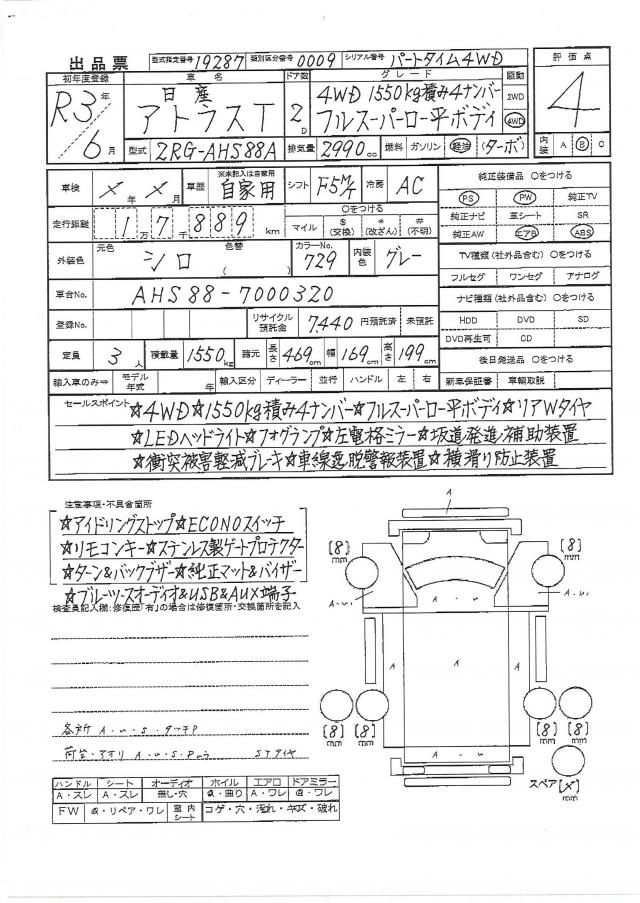 出品票
型式指定番号 19287 類別区分番号 0009 シリアル番号 パートタイム4WD
初年度登録 車名 ドア数 グレード 駆動 評価点
R3年 6月
日産 アトラスT
2D
4WD 1550kg積み4ナンバー
フルスーパーロー平ボディ
2WD
4WD
4
型式 2RG-AHS88A 排気量 2990cc 燃料 ガソリン 軽油 (ターボ) 内装 A B C
車検 ×年×月 車歴 ※未記入は自家用 自家用 シフト F5M/T 冷房 AC
走行距離 1万7千889km マイル ○をつける $(交換) *(改ざん) #(不明)
外装色 元色 シロ 色替 ( ) カラーNo. 729 内装色 グレー
車台No. AHS88-7000320
登録No. リサイクル預託金 7,440円預託済 未預託
定員 3人 積載量 1550kg 諸元 長さ469cm 幅169cm 高さ199cm
輸入車のみ⇒ モデル年式 年 輸入区分 ディーラー 並行 ハンドル 左 右
純正装備品 ○をつける
PS PW 純正TV
純正ナビ 革シート SR
純正AW エアB ABS
TV種類(社外品含む) ○をつける
フルセグ ワンセグ アナログ
ナビ種類(社外品含む) ○をつける
HDD DVD SD
DVD再生可 CD
後日発送品 ○をつける
新車保証書 車輌取説
セールスポイント ☆4WD☆1550kg積み4ナンバー☆フルスーパーロー平ボディ☆リアWタイヤ
☆LEDヘッドライト☆フォグランプ☆左電格ミラー☆坂道発進補助装置
☆衝突被害軽減ブレーキ☆車線逸脱警報装置☆横滑り防止装置
注意事項・不具合箇所
☆アイドリングストップ☆ECONOスイッチ
☆リモコンキー☆ステンレス製ゲートプロテクター
☆ターン&バックブザー☆純正マット&バイザー
☆ブルーツースオーディオ&USB&AUX端子
検査員記入欄:修復歴「有」の場合は修復箇所・交換箇所を記入
各所 A・U・S・タッチP
荷台・アオリ A・U・S・Pむら STタイヤ
ハンドル シート オーディオ ホイル エアロ ドアミラー
A・スレ A・スレ 無し・穴 G・曲り A・ワレ G・ワレ
FW G・リペア・ワレ 室内シート コゲ・穴・汚れ・キズ・破れ
A
[8]mm [8]mm
A・U A・U
A
A A A
[8]mm [8]mm [8]mm [8]mm
A・U
スペア[メ]mm